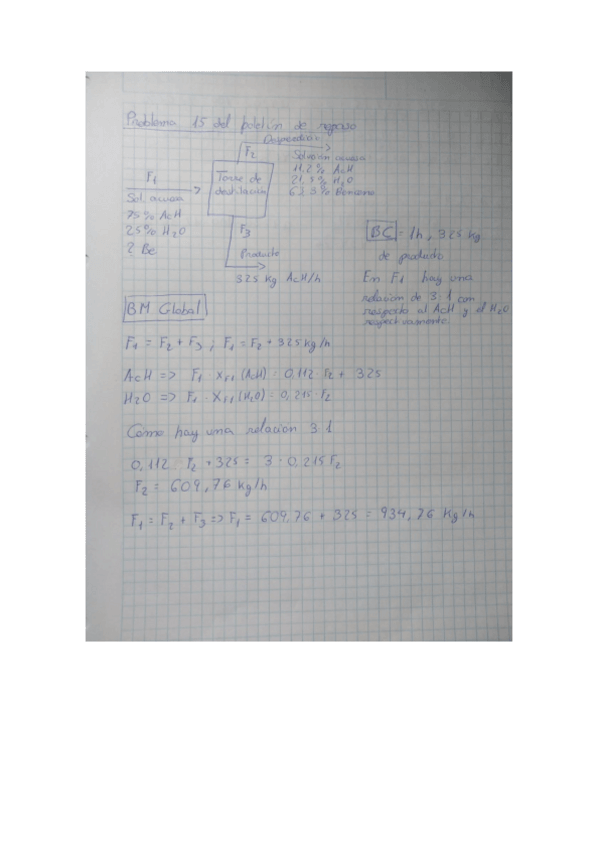 Problema 15 del boletín de repaso
Desperdicio
F2
Solución acuosa
11,2% AcH
21,5% H2O
Benceno
F1
Torre de
destilación
Sol. acuosa
75% AcH
25% H2O
? Be
F3
Producto
325 kg AcH/h
BC = 1h, 325 kg
de producto
En F1 hay una
relación de 3:1 con
respecto al AcH y el H2O
respectivamente.
BM Global
F1 = F2 + F3 ; F1 = F2 + 325 kg/h
AcH => F1 · XF1 (AcH) = 0,112 · F2 + 325
H2O => F1 · XF1 (H2O) = 0,215 · F2
Como hay una relación 3:1
0,112 · F2 + 325 = 3 · 0,215 F2
F2 = 609,76 kg/h
F1 = F2 + F3 => F1 = 609,76 + 325 = 934,76 kg/h